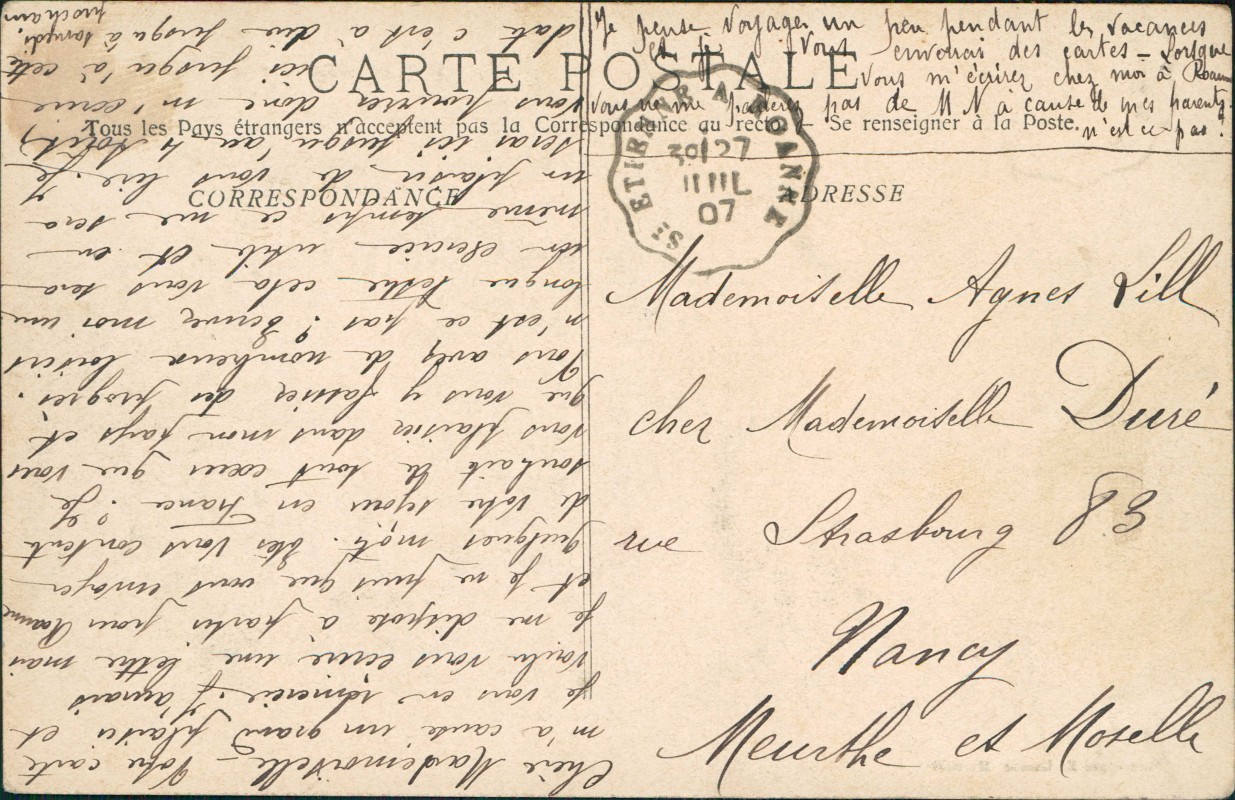 CARTE POSTALE
Tous les Pays étrangers n'acceptent pas la Correspondance au recto. – Se renseigner à la Poste.
CORRESPONDANCE
ADRESSE
Sᵗ ETIENNE A ROANNE
30 JUIL
07
Mademoiselle Agnes Lill
chez Mademoiselle Duré
rue Strasbourg 83
Nancy
Meurthe et Moselle
Chère Mademoiselle – Votre carte
m'a causé un grand plaisir et
je vous en remercie. J'aurais
voulu vous écrire une lettre mais
je me dispose à partir pour Roanne
et je ne puis que vous envoyer
quelques mots. Etes vous contente
de votre séjour en France? Je
souhaite de tout cœur que vous
vous plaisiez dans mon pays et
que vous y fassiez des progrès.
Vous avez de nombreux loisirs
n'est ce pas? Ecrivez moi une
longue lettre cela vous sera
un exercice utile et en
même temps ce me sera
un plaisir de vous lire. Je
serai ici jusqu'au 4 août,
vous pourrez donc m'écrire
ici jusqu'à cette
date c'est à dire jusqu'à samedi
prochain.
Je pense voyager un peu pendant les vacances
et je vous enverrai des cartes – Lorsque
vous m'écrirez chez moi à Roanne
vous ne me parlerez pas de M N à cause de mes parents.
n'est ce pas?